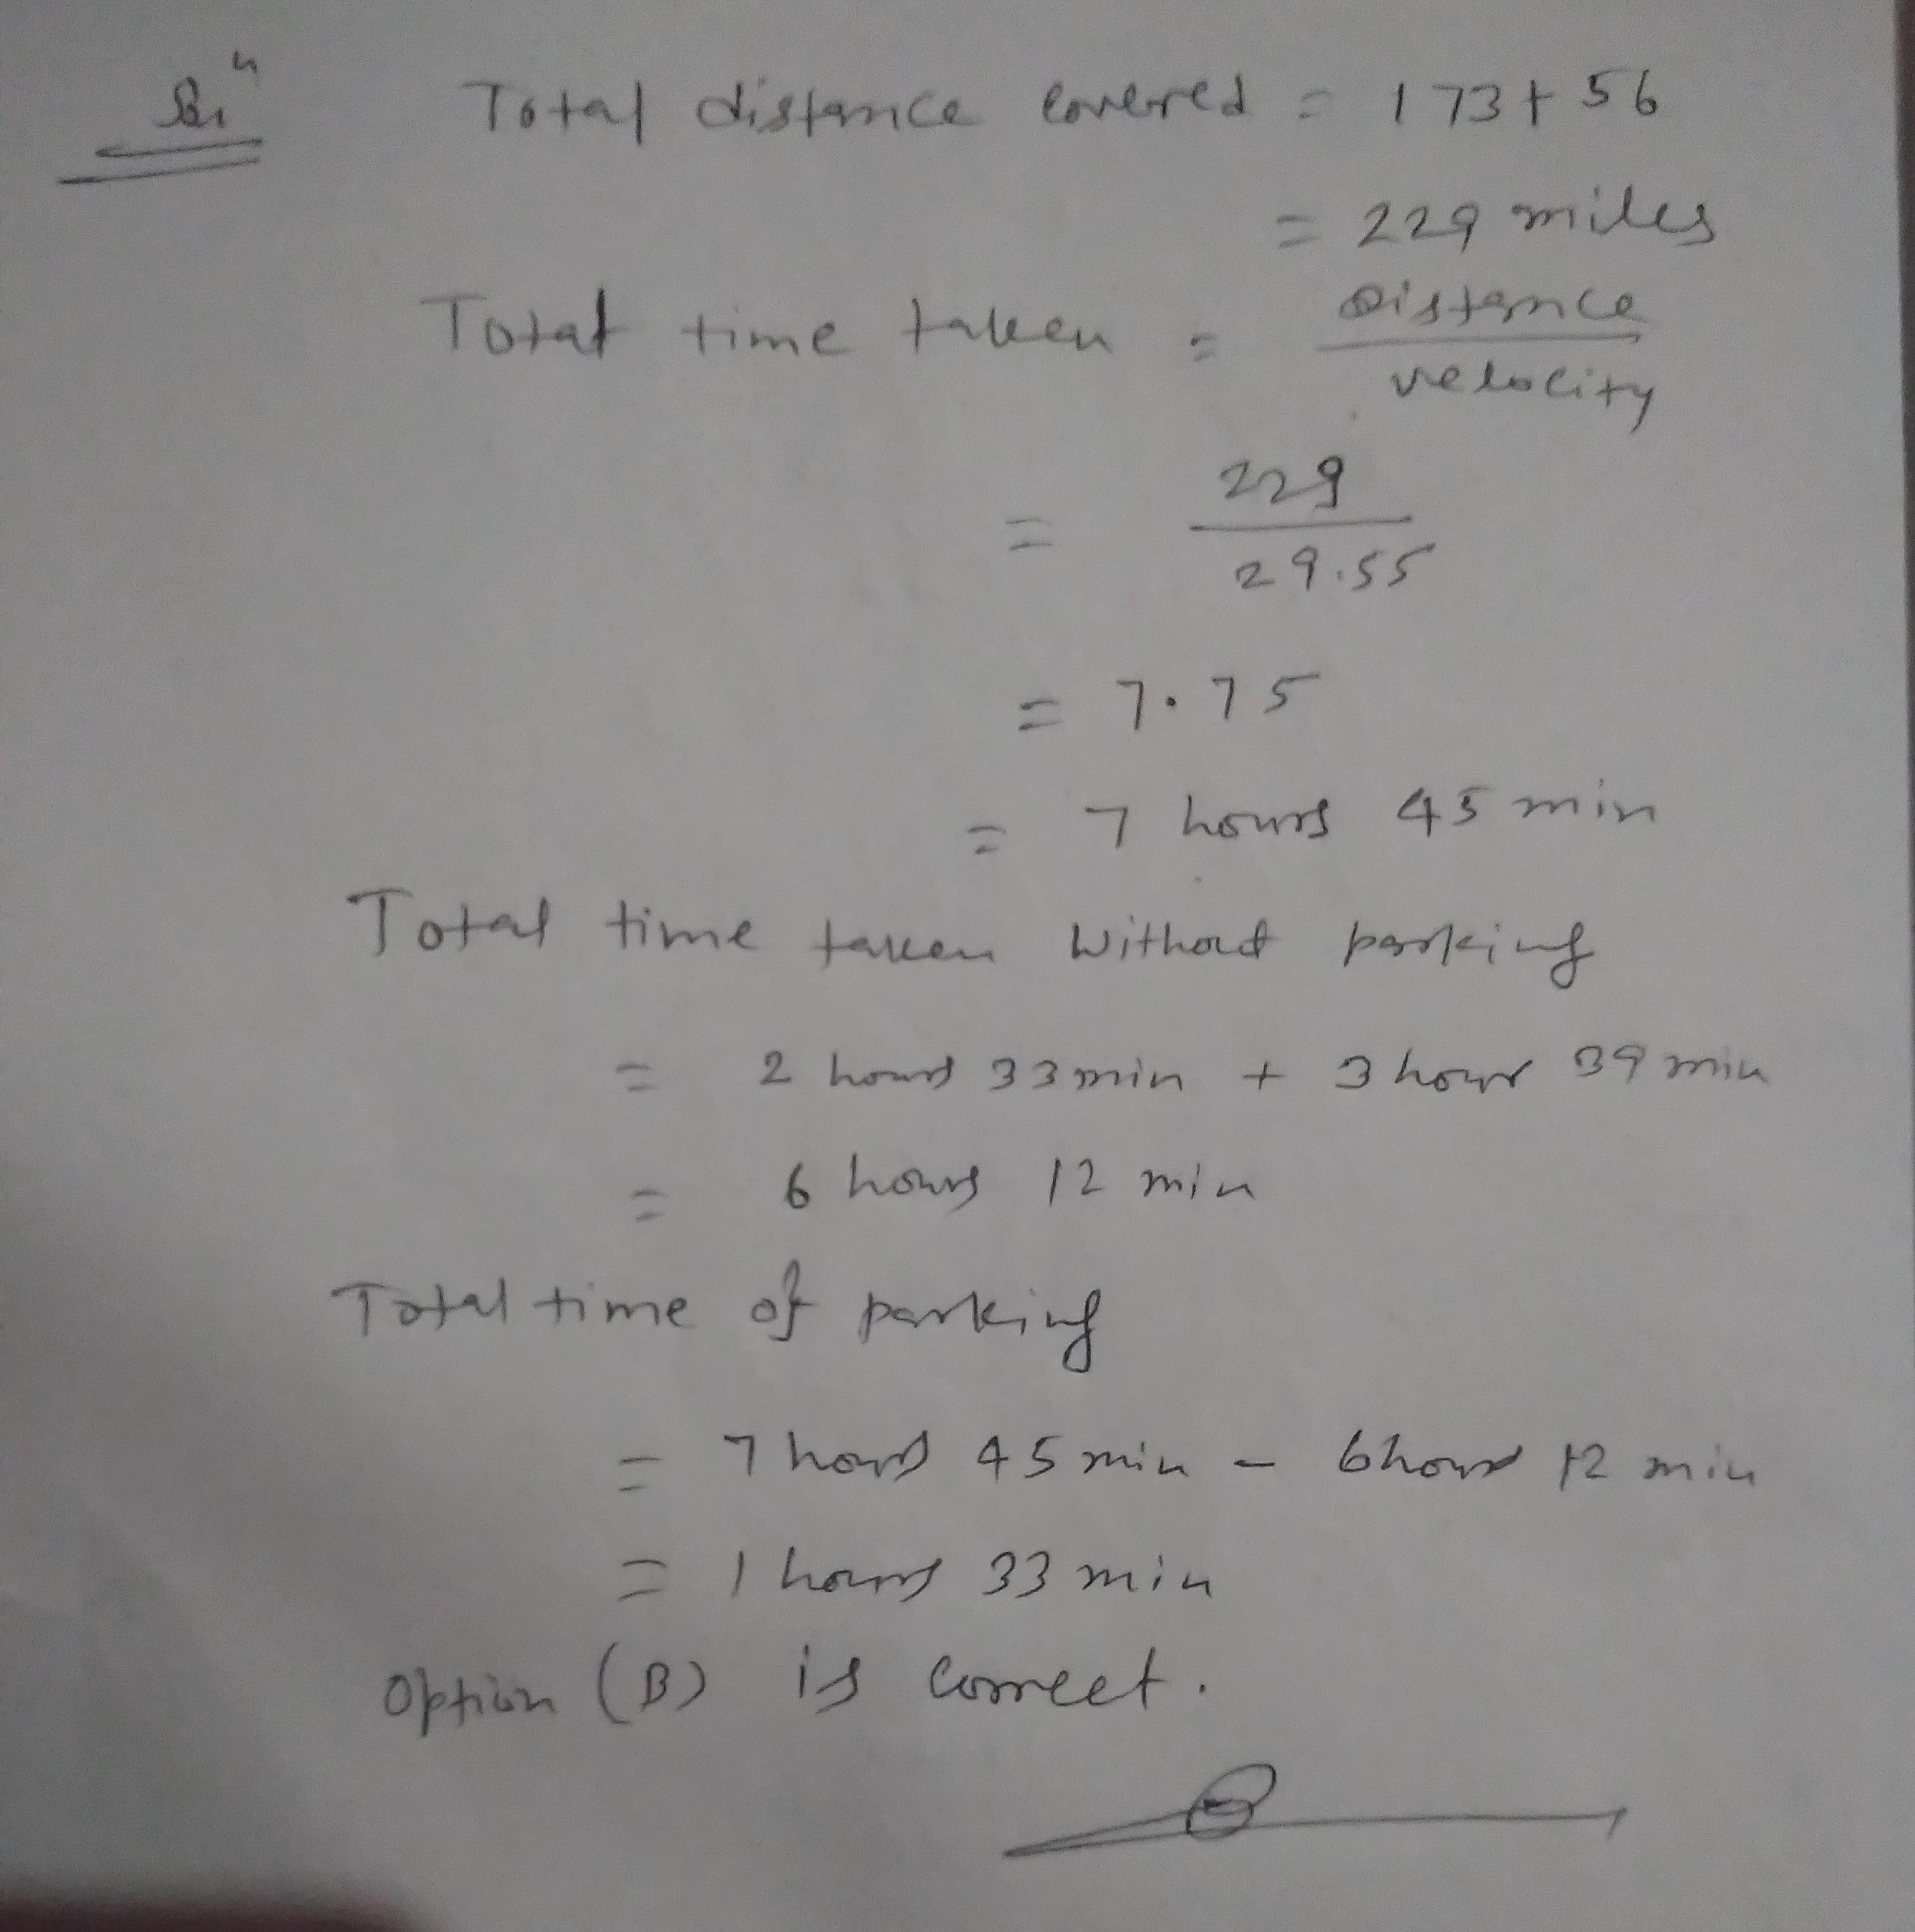 Sol n Total distance covered = 173 + 56
= 229 miles
Total time taken = Distance
velocity
= 229
29.55
= 7.75
= 7 hours 45 min
Total time taken without parking
= 2 hours 33 min + 3 hour 39 min
= 6 hours 12 min
Total time of parking
= 7 hours 45 min - 6 hours 12 min
= 1 hours 33 min
Option (B) is correct.